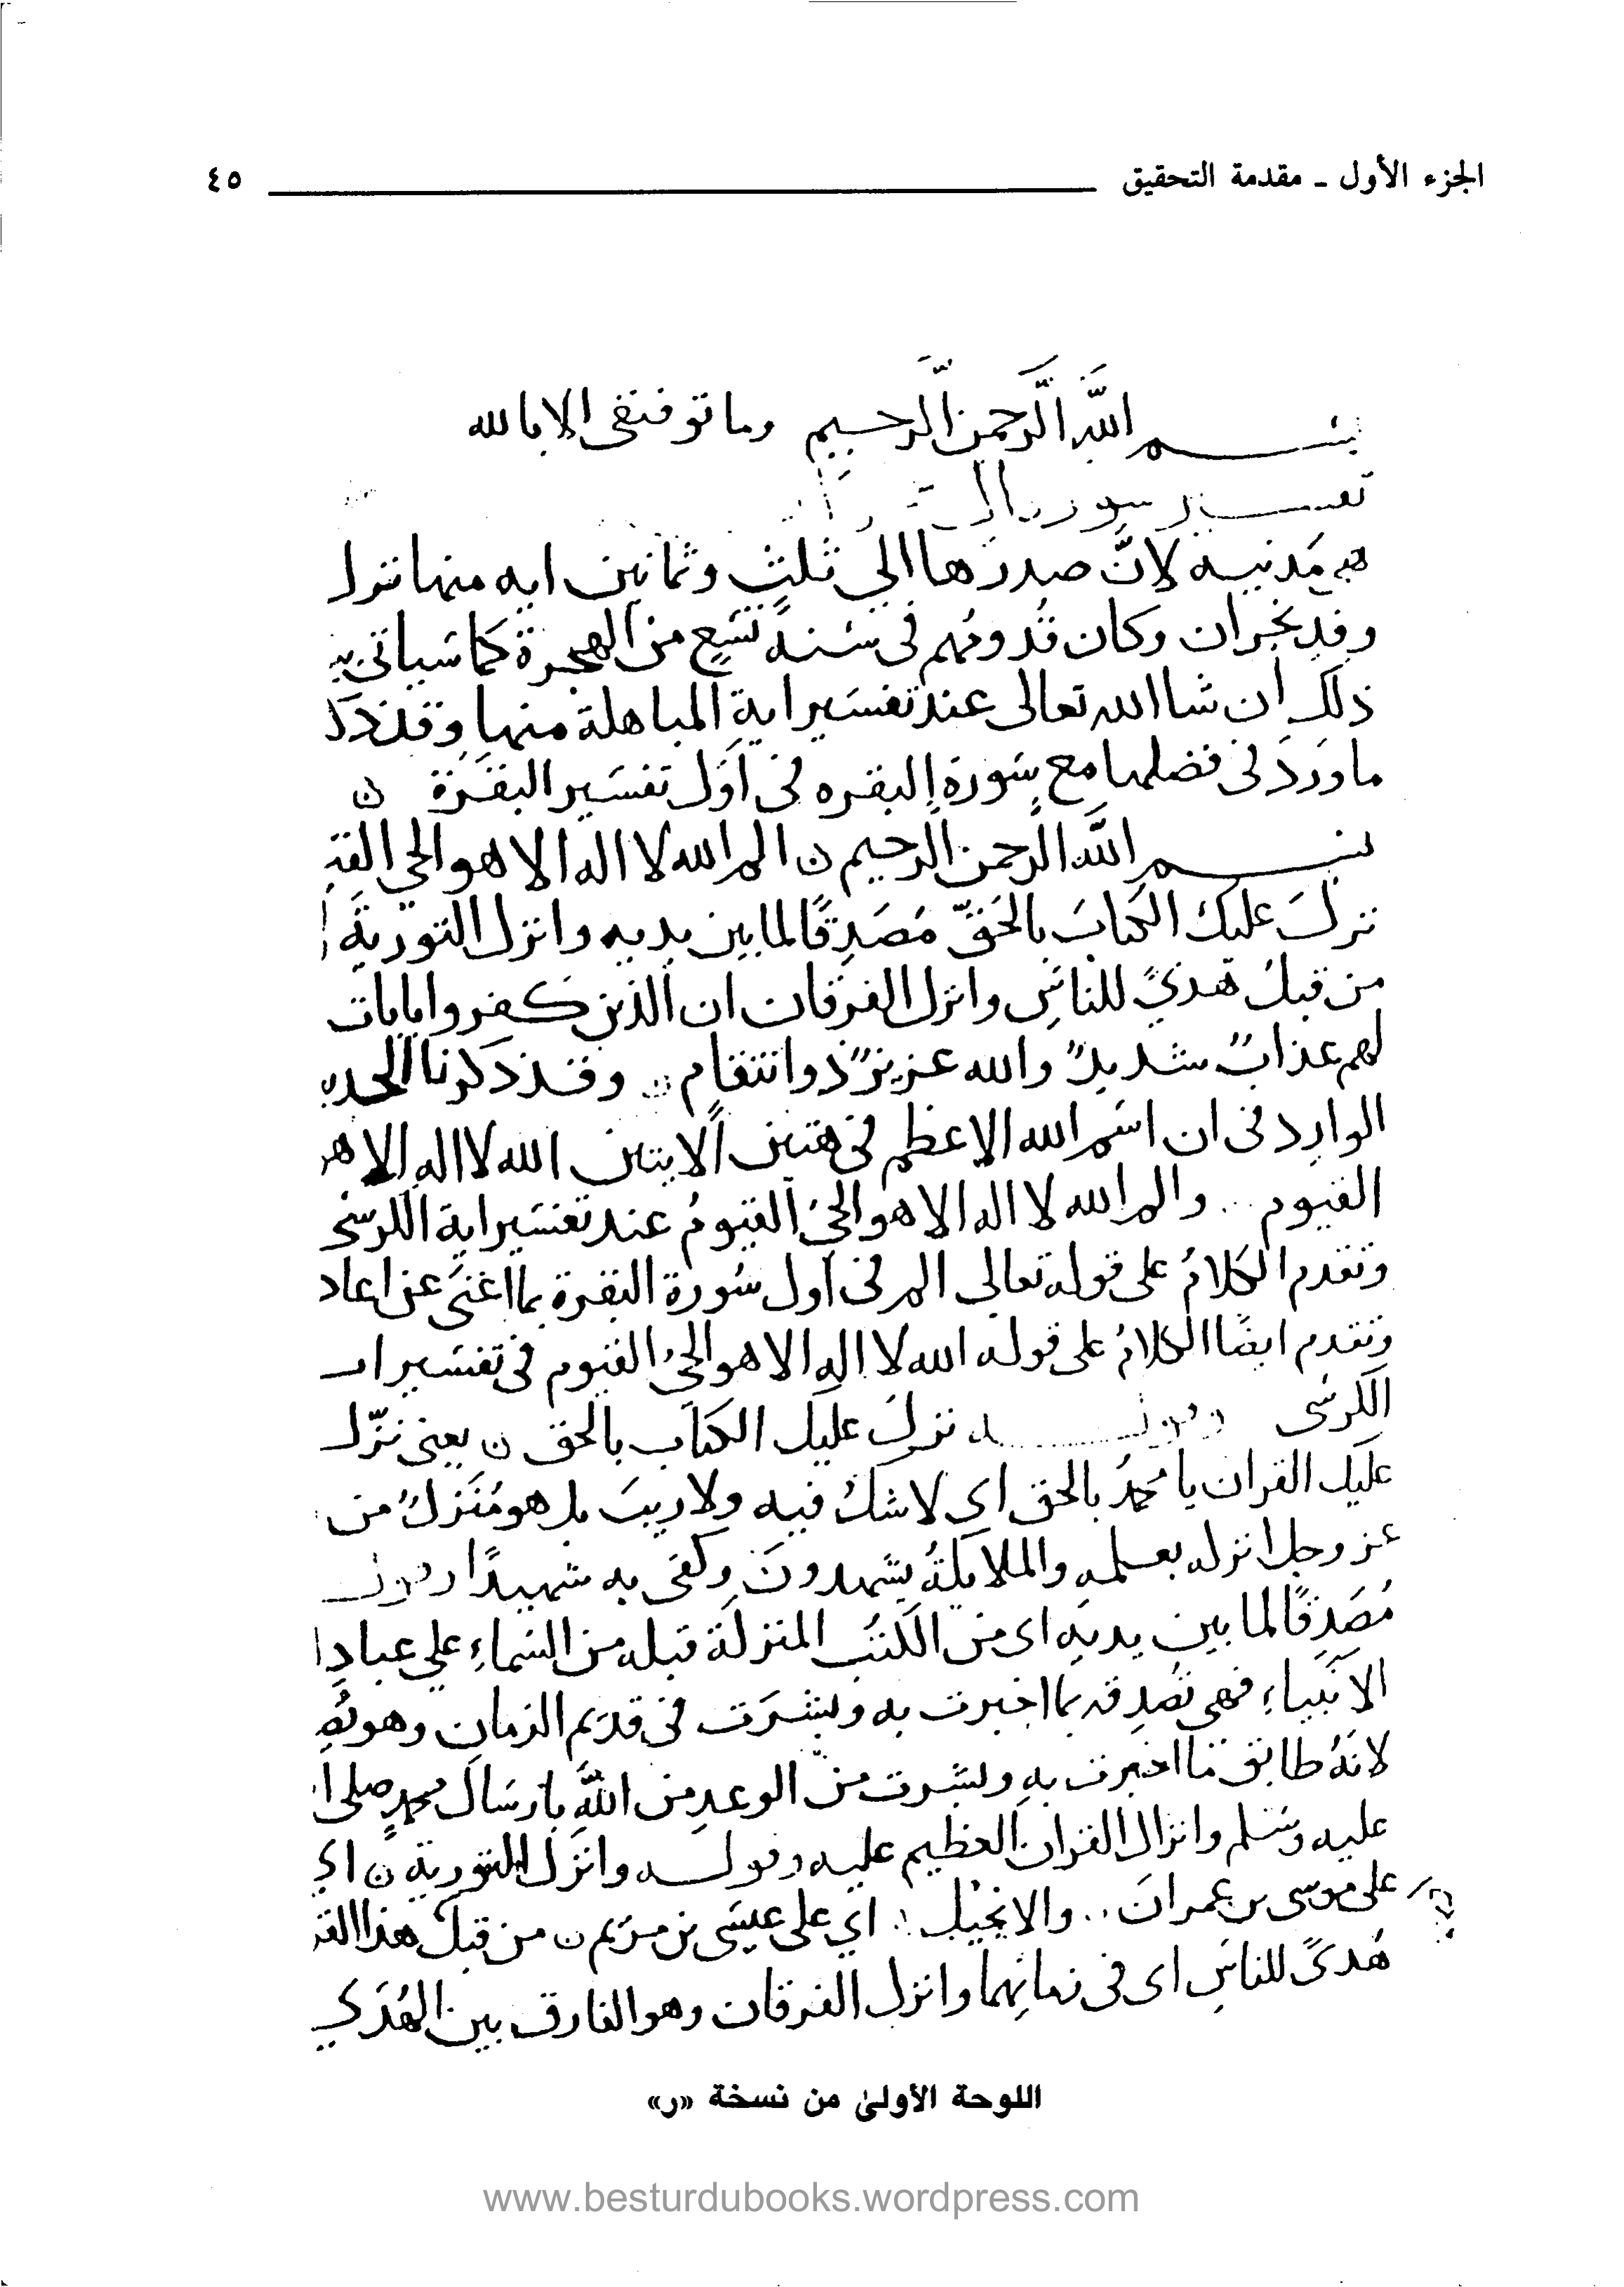 الجزء الأول - مقدمة التحقيق ٤٥
بسم اللّه الرحمن الرحيم وما توفيقى الا بالله
تفسير سورة
هى مدنيه لانّ صدرها الي ثلث وثمانين ايه منها نزل
وفد نجران وكان قُدومُهم فى سنةً تسع من الهجرة كما سياتى
ذلك ان شا الله تعالى عند تفسير اية المباهلة منها وقد
ما ورد فى فضلها مع سورة البقره فى اوّل تفسير البقرة ن
بسم اللّه الرحمن الرحيم ن الم الله لا اله الا هو الحي
نزلَ عليك الكتابَ بالحَقّ مُصَدِقًا لما بين يديه وانزل التورية
من قبلُ هدىً للناسِ وانزل الفرقان ان الذين كفروا بايات
لهم عذابٌ شديدٌ والله عزيزٌ ذو انتقام ن وقد ذكرنا
الوارد فى ان اسم الله الاعظم فى هتين الايتين الله لا اله الا هو
القيوم والم الله لا اله الا هو الحيُ القيومُ عند تفسير اية الكرسى
وتقدم الكلامُ على قوله تعالى الم فى اول سُورة البقرة بما اغنى عن
وتقدم ايضًا الكلامُ على قوله الله لا اله الا هو الحيُ القيوم فى تفسير
الكرسى نزلَ عليك الكتاب بالحق ن يعنى نزّل
عليك القران يا محمدُ بالحق اي لا شكَ فيه ولا ريبَ بل هو مُنزلٌ من
عز وجل انزله بعلمه والملايكةُ يشهدونَ وكفى به شهيدًا
مُصَدِقًا لما بين يديه اى من الكتُبِ المنزلة قبله من السماءِ علي
الانبياءِ فهى تصدقه بما اخبرت به وبشرَت فى قديم الزمان وهو
لانهُ طابق ما اخبرت به وبشرت من الوعدِ من اللّهِ بارسال محمدٍ صلى
عليه وسلم وانزال القران العظيم عليه وقوله وانزل التورية ن اي
على موسى بن عمرانَ والانجيل اي على عيسَى بن مريم ن من قبلُ هذا
هُدىً للناسِ اى فى زمانِهما وانزل الفرقان وهو الفارق بين الهُدَي
اللوحة الأولىٰ من نسخة «ر»
www.besturdubooks.wordpress.com